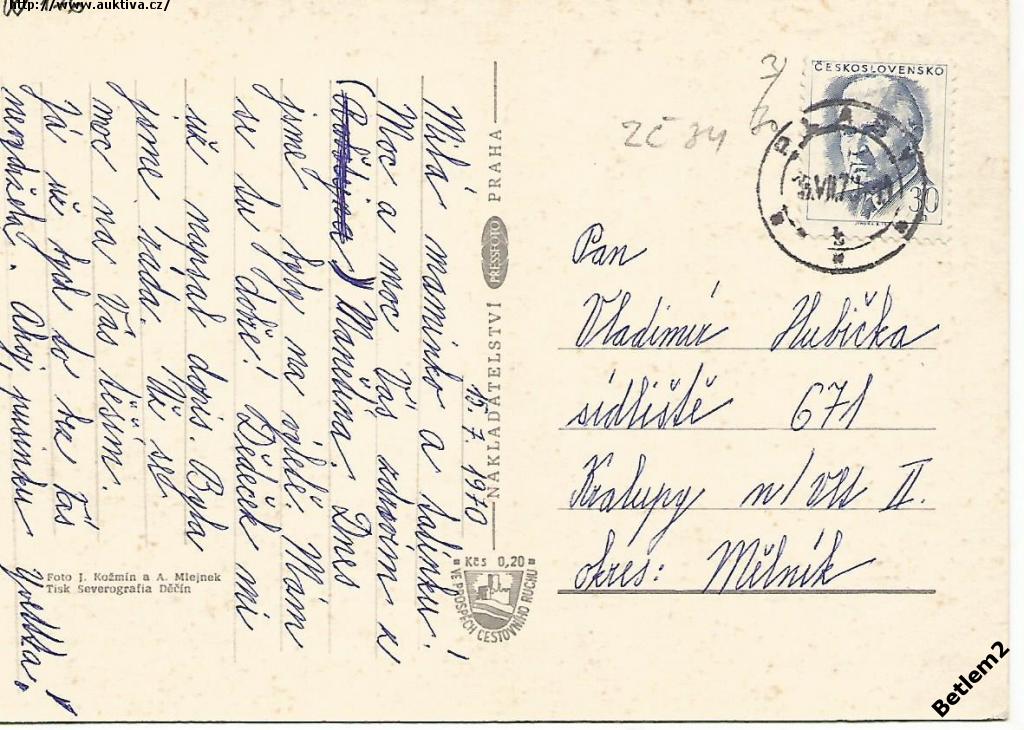 http://www.auktiva.cz/
15. 7. 1970
Milá maminko a tatínku!
Moc a moc Vás zdravím z
Manětína. Dnes
jsme byly na výletě. Mám
se tu dobře! Dědeček mi
už napsal dopis. Byla
jsme ráda. Už se
moc na Vás těším.
Já už bych to bez Vás
nevydržela. Ahoj, pusinku
NAKLADATELSTVÍ PRESSFOTO PRAHA
Foto J. Kožmín a A. Mlejnek
Tisk Severografia Děčín
Kčs 0,20
VE PROSPĚCH CESTOVNÍHO RUCHU
ZČ 34
ČESKOSLOVENSKO
30
PLASY
Pan
Vladimír Hubička
sídliště 671
Kralupy n/Vlt II.
okres: Mělník
Betlem2